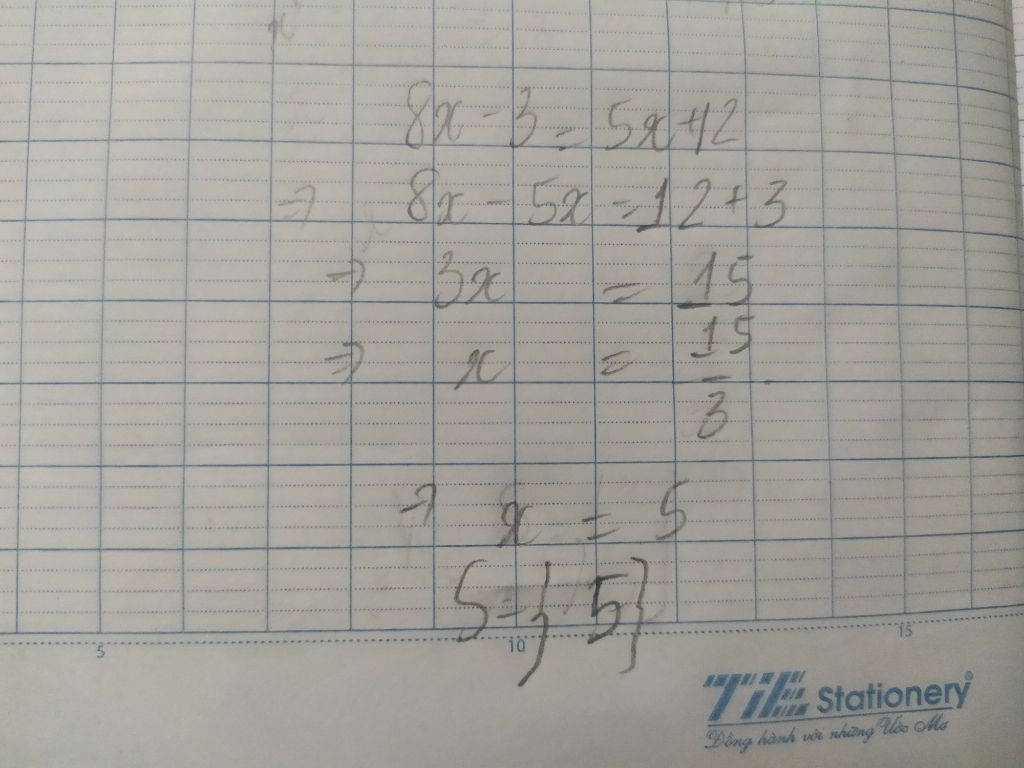 8x - 3 = 5x + 12
⇒ 8x - 5x = 12 + 3
⇒ 3x = 15
⇒ x = 15/3
⇒ x = 5
S = {5}
5 10 15
TIE Stationery®
Đồng hành với những Ước Mơ